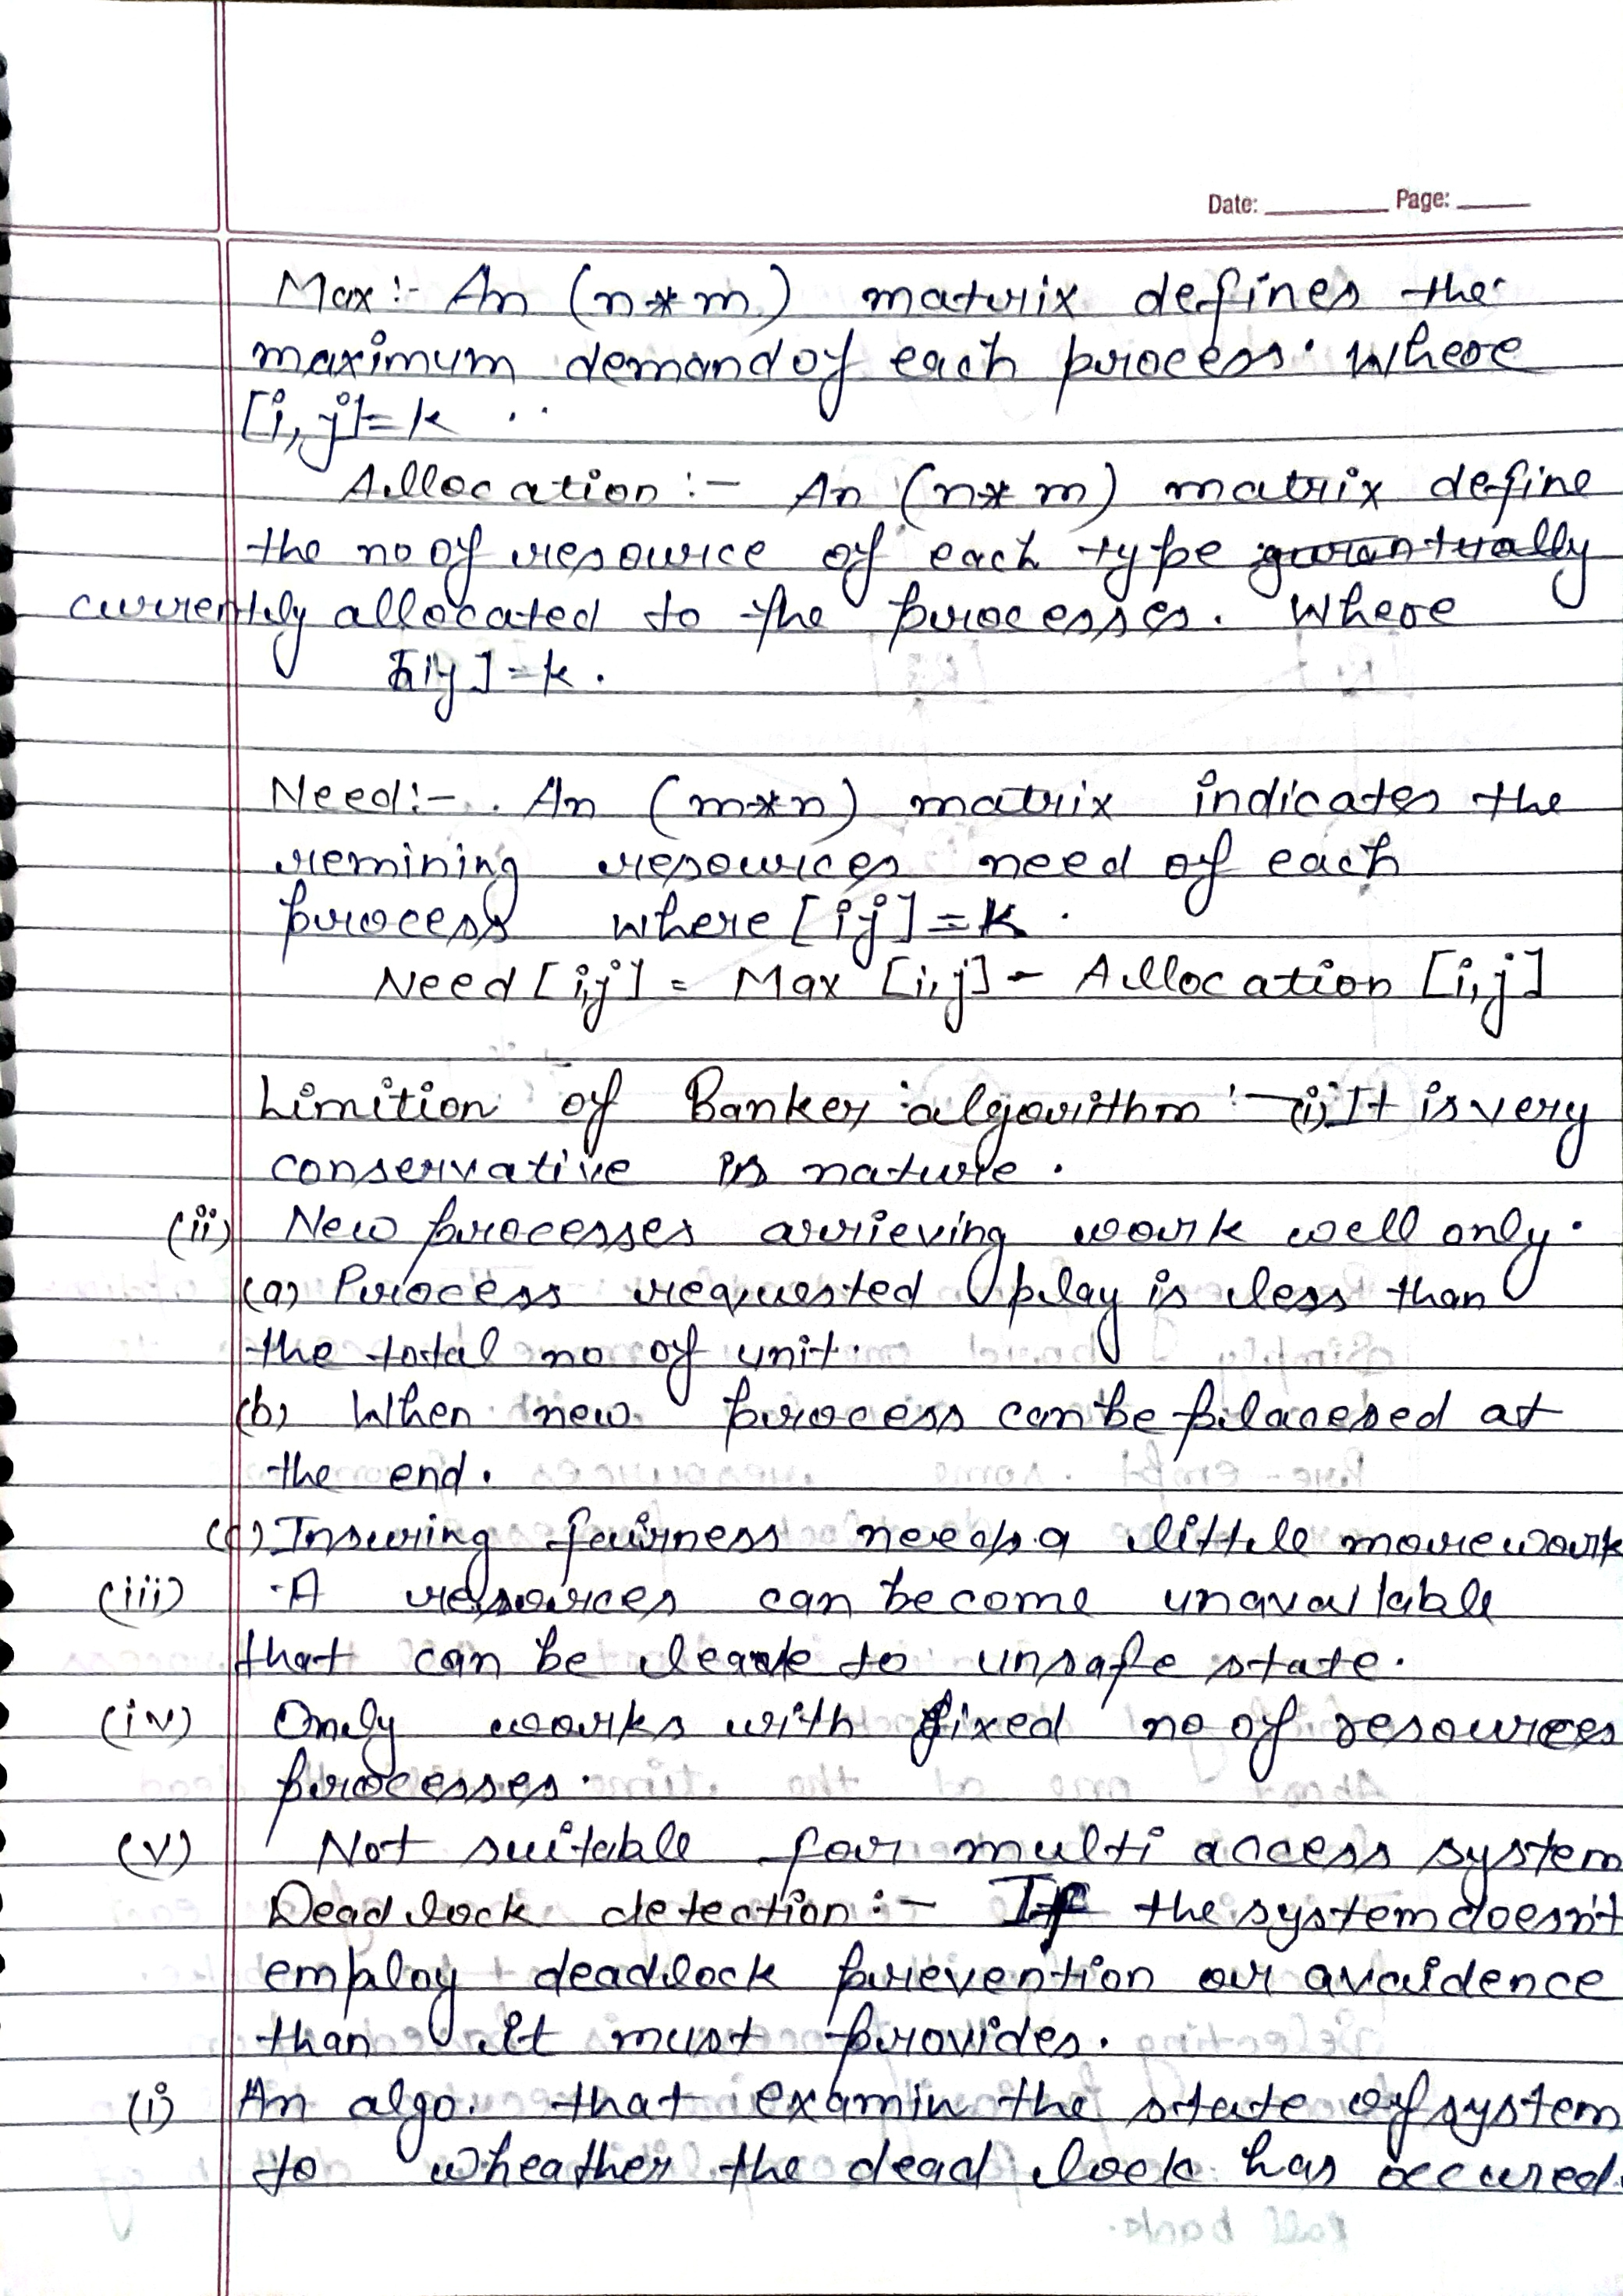 Date: Page:
Max :- An (n*m) matrix defines the
maximum demand of each process. Where
[i, j]=k
Allocation :- An (n*m) matrix define
the no of resource of each type
currently allocated to the processes. Where
[i,j]=k.
Need :- An (m*n) matrix indicates the
remining resources need of each
process where [ij]=k.
Need [i,j] = Max [i,j] - Allocation [i,j]
Limition of Banker algorithm :- (i) It is very
conservative is nature.
(ii) New processes arrieving work well only.
(a) Process requested play is less than
the total no of unit.
(b) When new process can be placesed at
the end.
(c) Insuring fairness needs a little more work
(iii) A resources can become unavailable
that can be leade to unsafe state.
(iv) Only works with fixed no of resources
processes.
(v) Not suitable for multi access system
Dead lock detection :- If the system doesn't
employ deadlock prevention or avaidence
than it must provides.
(i) An algo. that examin the state of system
to wheather the dead lock has occured.